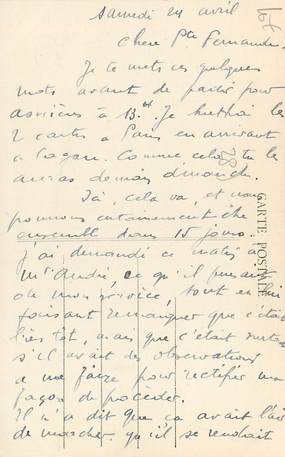 Samedi 24 avril
Chère Pte Fernande.
Je te mets ces quelques
mots avant de partir pour
Asnières à 13h. Je mettrai les
2 cartes à Paris en arrivant
à la gare. Comme cela tu les
auras demain dimanche.
Ici, cela va, et nous
pourrons certainement être
ensemble dans 15 jours.
J'ai demandé ce matin à
Mr André, ce qu'il pensait
de mon service, tout en lui
faisant remarquer que c'était
bien tôt, mais que c'était surtout
s'il avait des observations
à me faire pour rectifier ma
façon de procéder.
Il m'a dit que ça avait l'air
de marcher, qu'il se rendait
CARTE POSTALE